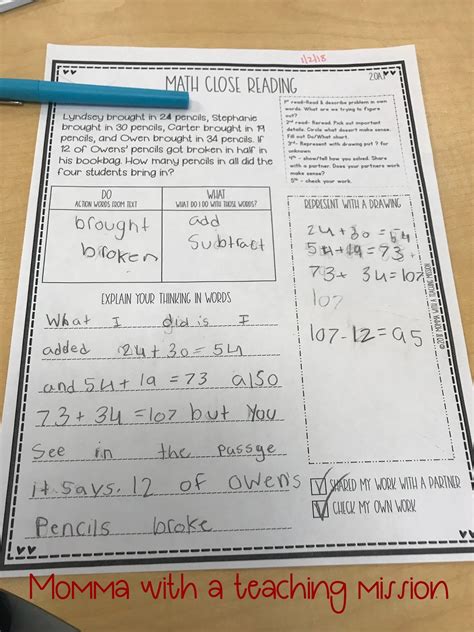 1/2/18
MATH CLOSE READING
2.OA.1
Lyndsey brought in 24 pencils, Stephanie
brought in 30 pencils, Carter brought in 19
pencils, and Owen brought in 34 pencils. If
12 of Owens' pencils got broken in half in
his bookbag. How many pencils in all did the
four students bring in?
1st read-Read & describe problem in own
words. What are you trying to figure
out?
2nd read- Reread. Pick out important
details. Circle what doesn't make sense.
Fill out Do/What chart.
3rd- Represent with drawing put ? for
unknown
4th - show/tell how you solved. Share
with a partner. Does your partners work
make sense?
5th - check your work.
DO
ACTION WORDS FROM TEXT
WHAT
WHAT DO I DO WITH THOSE WORDS?
brought
broken
add
Subtract
REPRESENT WITH A DRAWING
24 + 30 = 54
54 + 19 = 73
73 + 34 = 107
107
107-12 = 95
EXPLAIN YOUR THINKING IN WORDS
What I did is I
added 24 + 30 = 54
and 54 + 19 = 73 also
73 + 34 = 107 but You
See in the Passge
it says. 12 of Owens
Pencils broke
SHARED MY WORK WITH A PARTNER
CHECK MY OWN WORK
©2018 MOMMA WITH A TEACHING MISSION
MOMMA WITH A TEACHING MISSION